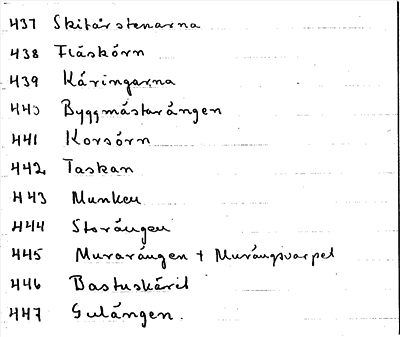 437 Skitårstenarna
438 Fläskörn
439 Käringarna
440 Byggmästarängen
441 Korsörn
442 Taskan
443 Munken
444 Storängen
445 Murarängen + Murängsvarpet
446 Bastuskäril
447 Gulängen.